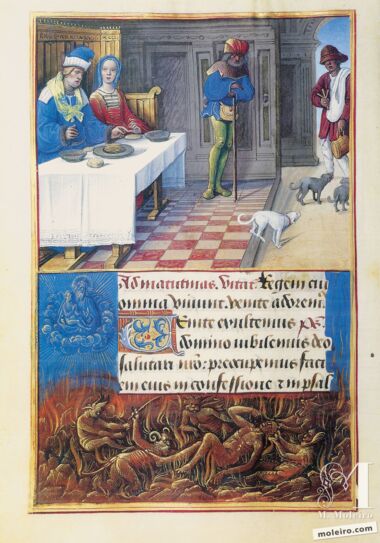 Ad matutinas. Vitat. Regem cui
omnia vivunt venite adorem
Enite exultemus ps.
domino iubilemus deo
salutari nro: preocupemus faci
em eius in confessione et in psal
M. Moleiro
moleiro.com